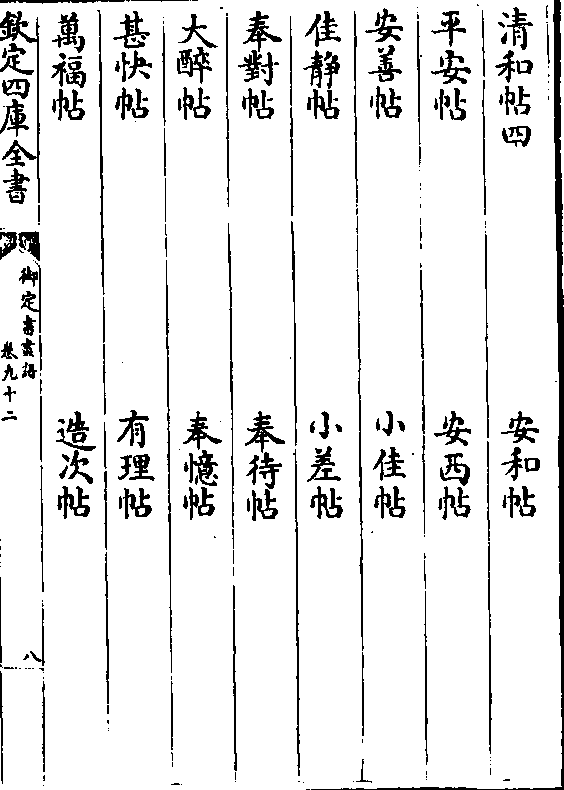 清和帖四 安和帖
平安帖 安西帖
安善帖 小佳帖
佳靜帖 小差帖
奉對帖 奉待帖
大醉帖 奉憶帖
甚快帖 有理帖
萬福帖 造次帖
欽定四庫全書
御定書畫譜
卷九十二
八